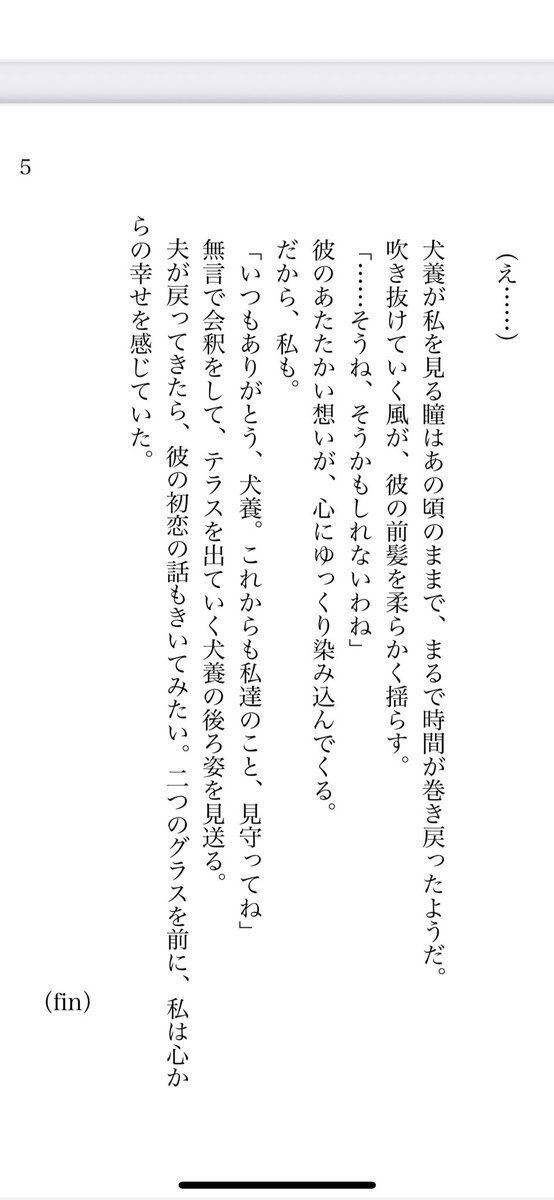 (え……)
犬養が私を見る瞳はあの頃のままで、まるで時間が巻き戻ったようだ。
吹き抜けていく風が、彼の前髪を柔らかく揺らす。
「……そうね、そうかもしれないわね」
彼のあたたかい想いが、心にゆっくり染み込んでくる。
だから、私も。
「いつもありがとう、犬養。これからも私達のこと、見守ってね」
無言で会釈をして、テラスを出ていく犬養の後ろ姿を見送る。
夫が戻ってきたら、彼の初恋の話もきいてみたい。二つのグラスを前に、私は心か
らの幸せを感じていた。
(fin)
5